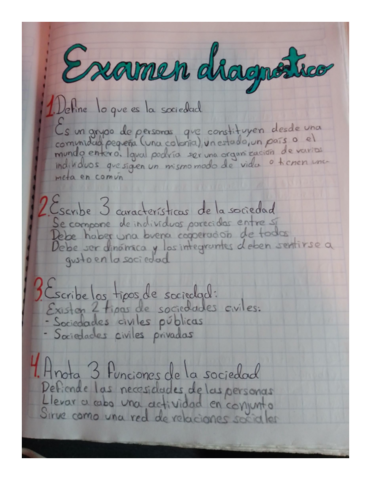 Examen diagnóstico
1. Define lo que es la sociedad
E
Es un grupo de personas que constituyen desde una
comunidad pequeña (una colonia), un estado, un país o el
mundo entero. Igual podría ser una organización de varios
individuos que siguen un mismo modo de vida o tienen una
meta en común
2. Escribe 3 características de la sociedad
Se compone de individuos parecidos entre sí
Debe haber una buena cooperación de todos
Debe ser dinámica y los integrantes deben sentirse a
gusto en la sociedad
3. Escribe los tipos de sociedad:
Existen 2 tipos de sociedades civiles:
- Sociedades civiles públicas
- Sociedades civiles privadas
4. Anota 3 funciones de la sociedad
Defiende las necesidades de las personas
Llevar a cabo una actividad en conjunto
Sirve como una red de relaciones sociales